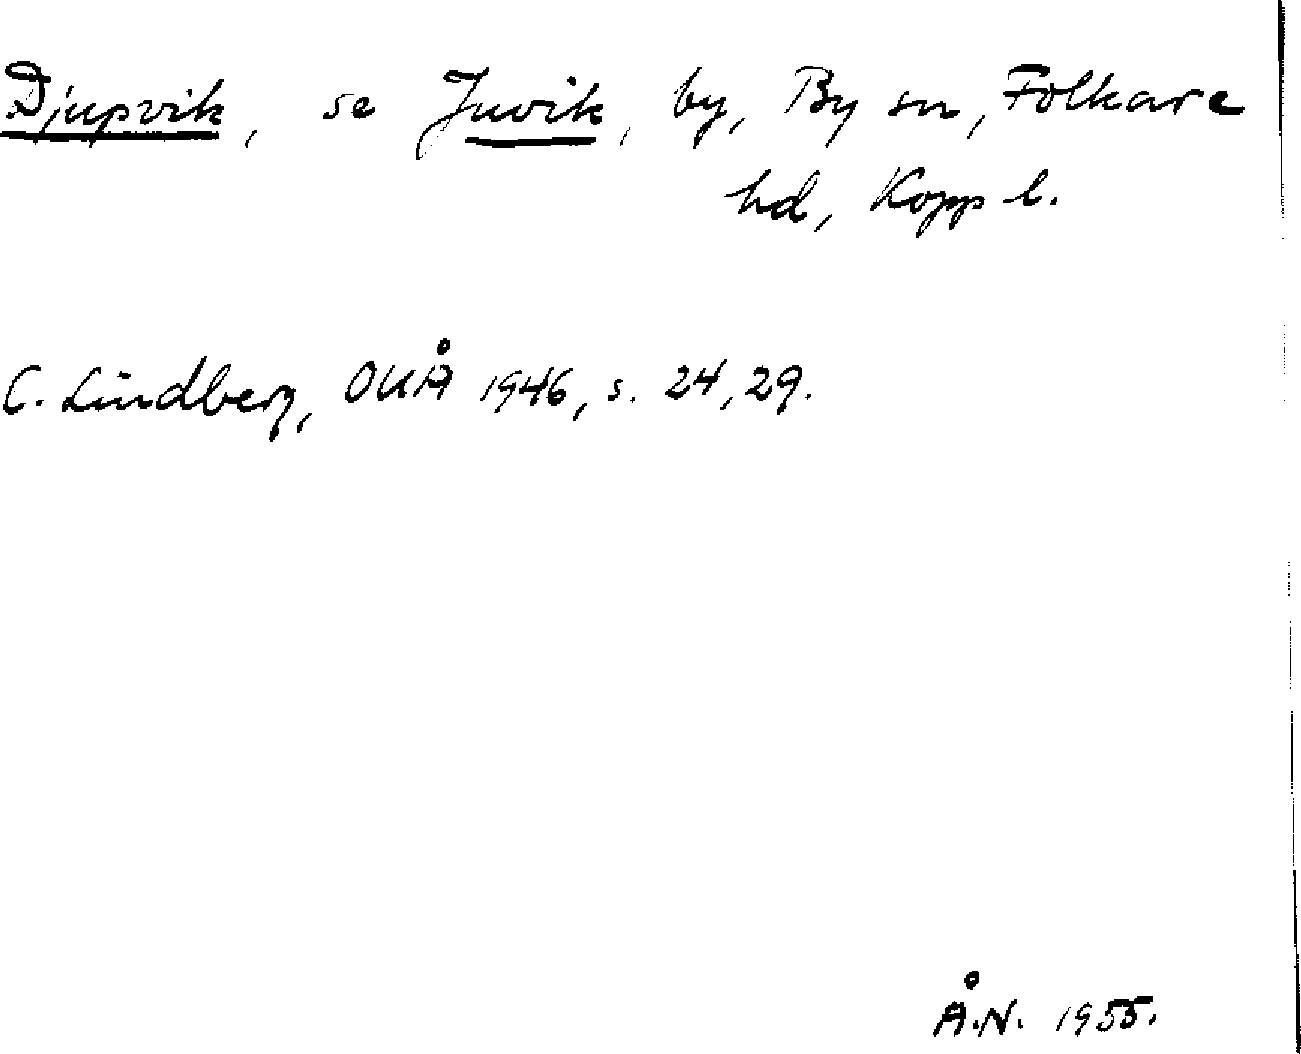 Djupvik, se Juvik, by, By sn, Folkare
hd, Kopp l.
C. Lindberg, OUÅ 1946, s. 24, 29.
Å.N. 1955.